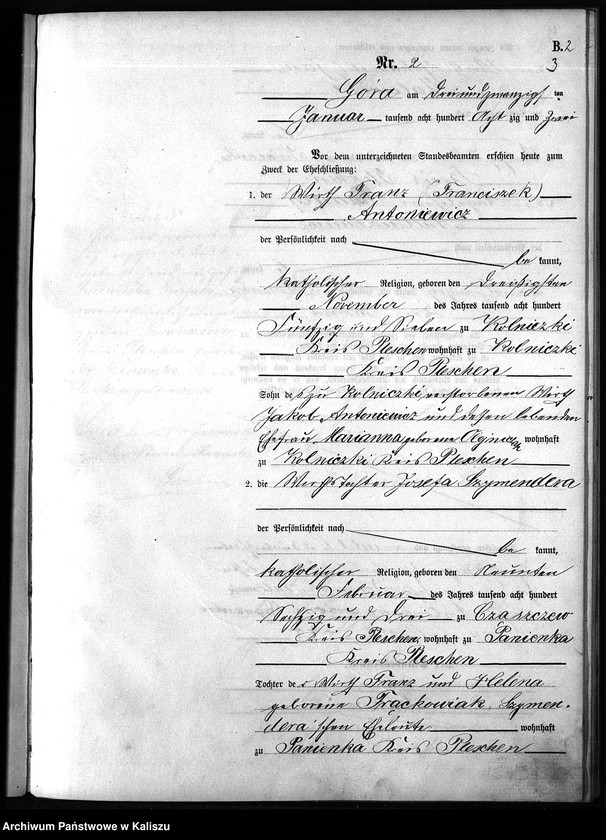 B. 2
Nr. 2 3
Góra am dreiundzwanzigsten
Januar tausend acht hundert Acht zig und Zwei
Vor dem unterzeichneten Standesbeamten erschien heute zum
Zweck der Eheschließung:
1. der Wirth Franz (Franciszek)
Antoniewicz
der Persönlichkeit nach
be kannt,
katholischer Religion, geboren den dreißigsten
November des Jahres tausend acht hundert
Fünfzig und Sieben zu Kolniczki
Kreis Pleschen wohnhaft zu Kolniczki
Kreis Pleschen
Sohn des zu Kolniczki verstorbenen Wirth
Jakob Antoniewicz und dessen lebenden
Ehefrau Marianna geborene wohnhaft
zu Kolniczki Kreis Pleschen
2. die Wirthstochter Josefa Szymendera
der Persönlichkeit nach
be kannt,
katholischer Religion, geboren den Neunten
Februar des Jahres tausend acht hundert
Sechzig und drei zu Czaszczew
Kreis Pleschen, wohnhaft zu Panienka
Kreis Pleschen
Tochter der Wirth Franz und Helena
geborene Frąckowiak, Szymen-
dera'schen Eheleute wohnhaft
zu Panienka Kreis Pleschen
Archiwum Państwowe w Kaliszu